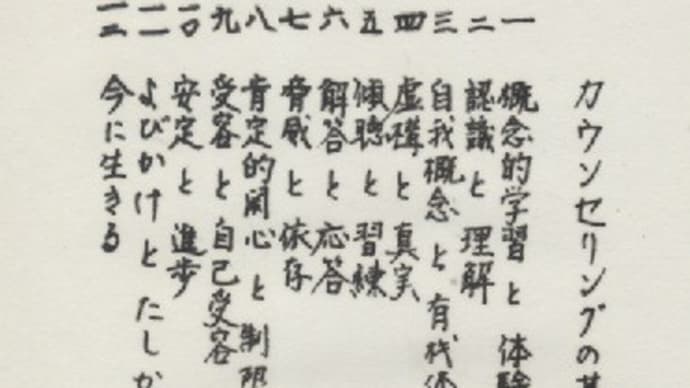 カウンセリングの
一 概念的学習と体験
二 認識と理解
三 自我概念と有機体
四 虚構と真実
五 傾聴と習練
六 解答と応答
七 脅威と依存
八 肯定的関心と制限
九 受容と自己受容
一〇 安定と進歩
一一 よびかけとたしか
一二 今に生きる